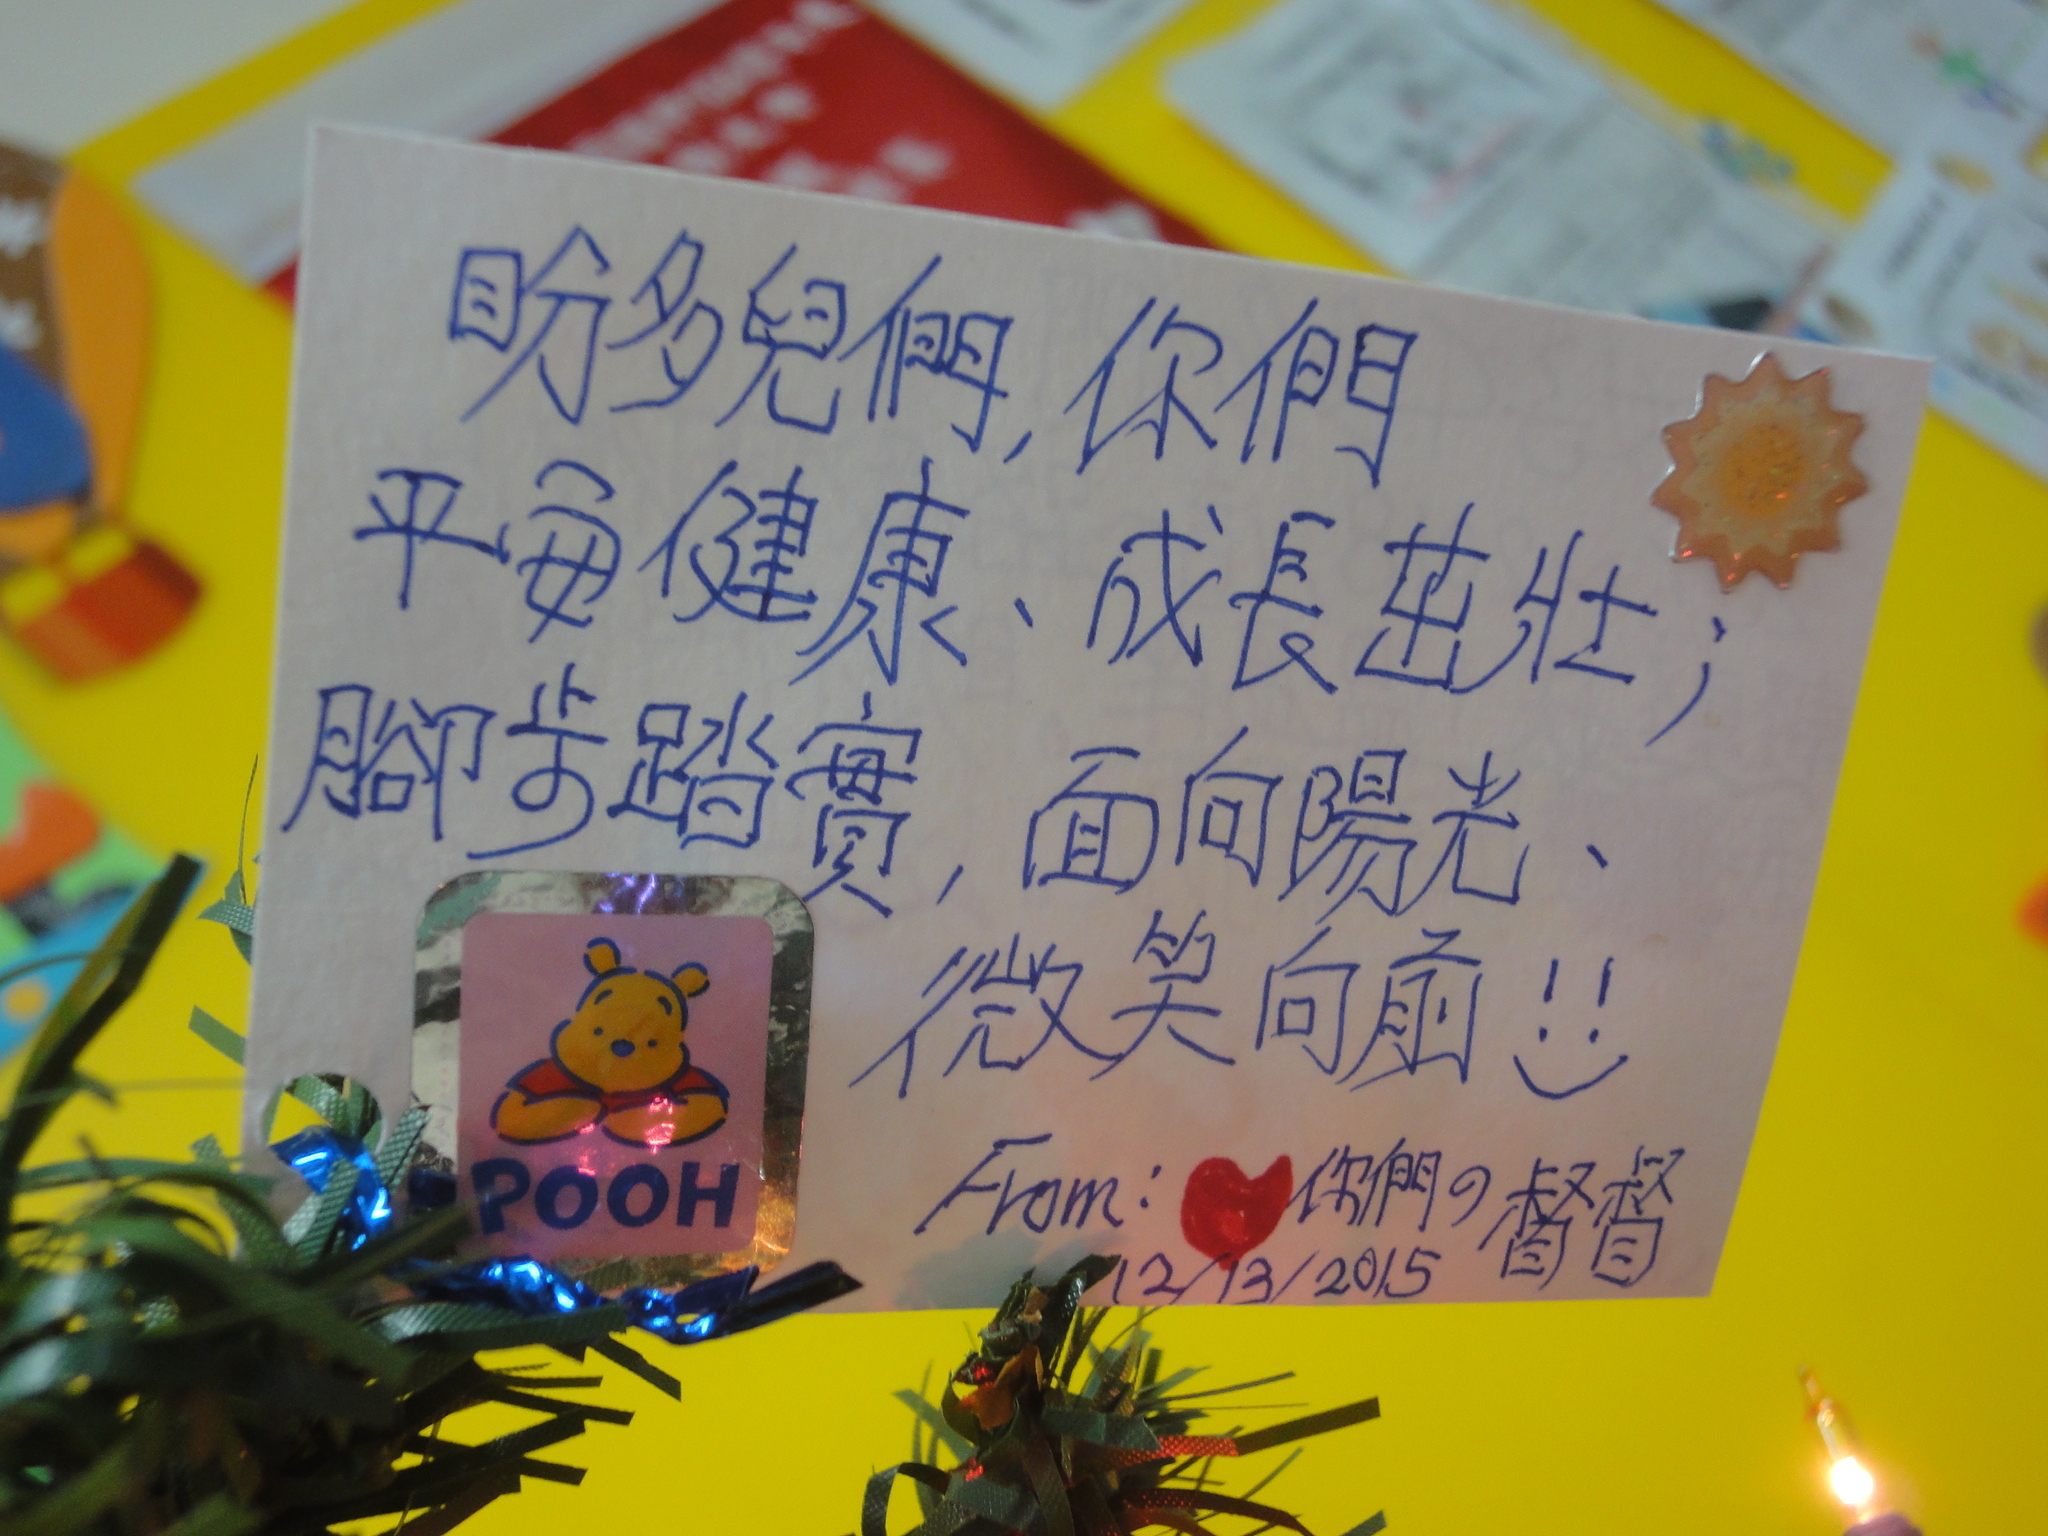 盼多兒們,你們
平安健康、成長茁壯;
腳步踏實,面向陽光、
微笑向前!!
From: 你們の督督
12/13/2015
POOH